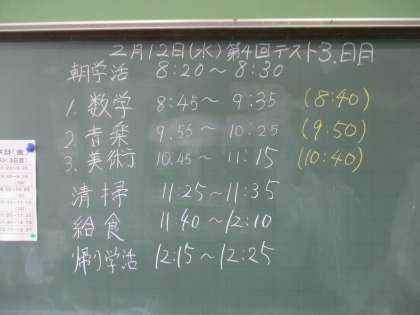 2月12日(水)第4回テスト3日目
朝学活 8:20～8:30
1. 数学 8:45～9:35 (8:40)
2. 音楽 9.55～10:25 (9:50)
3. 美術 10.45～11:15 (10:40)
清掃 11:25～11:35
給食 11:40～12:10
帰り学活 12:15～12:25